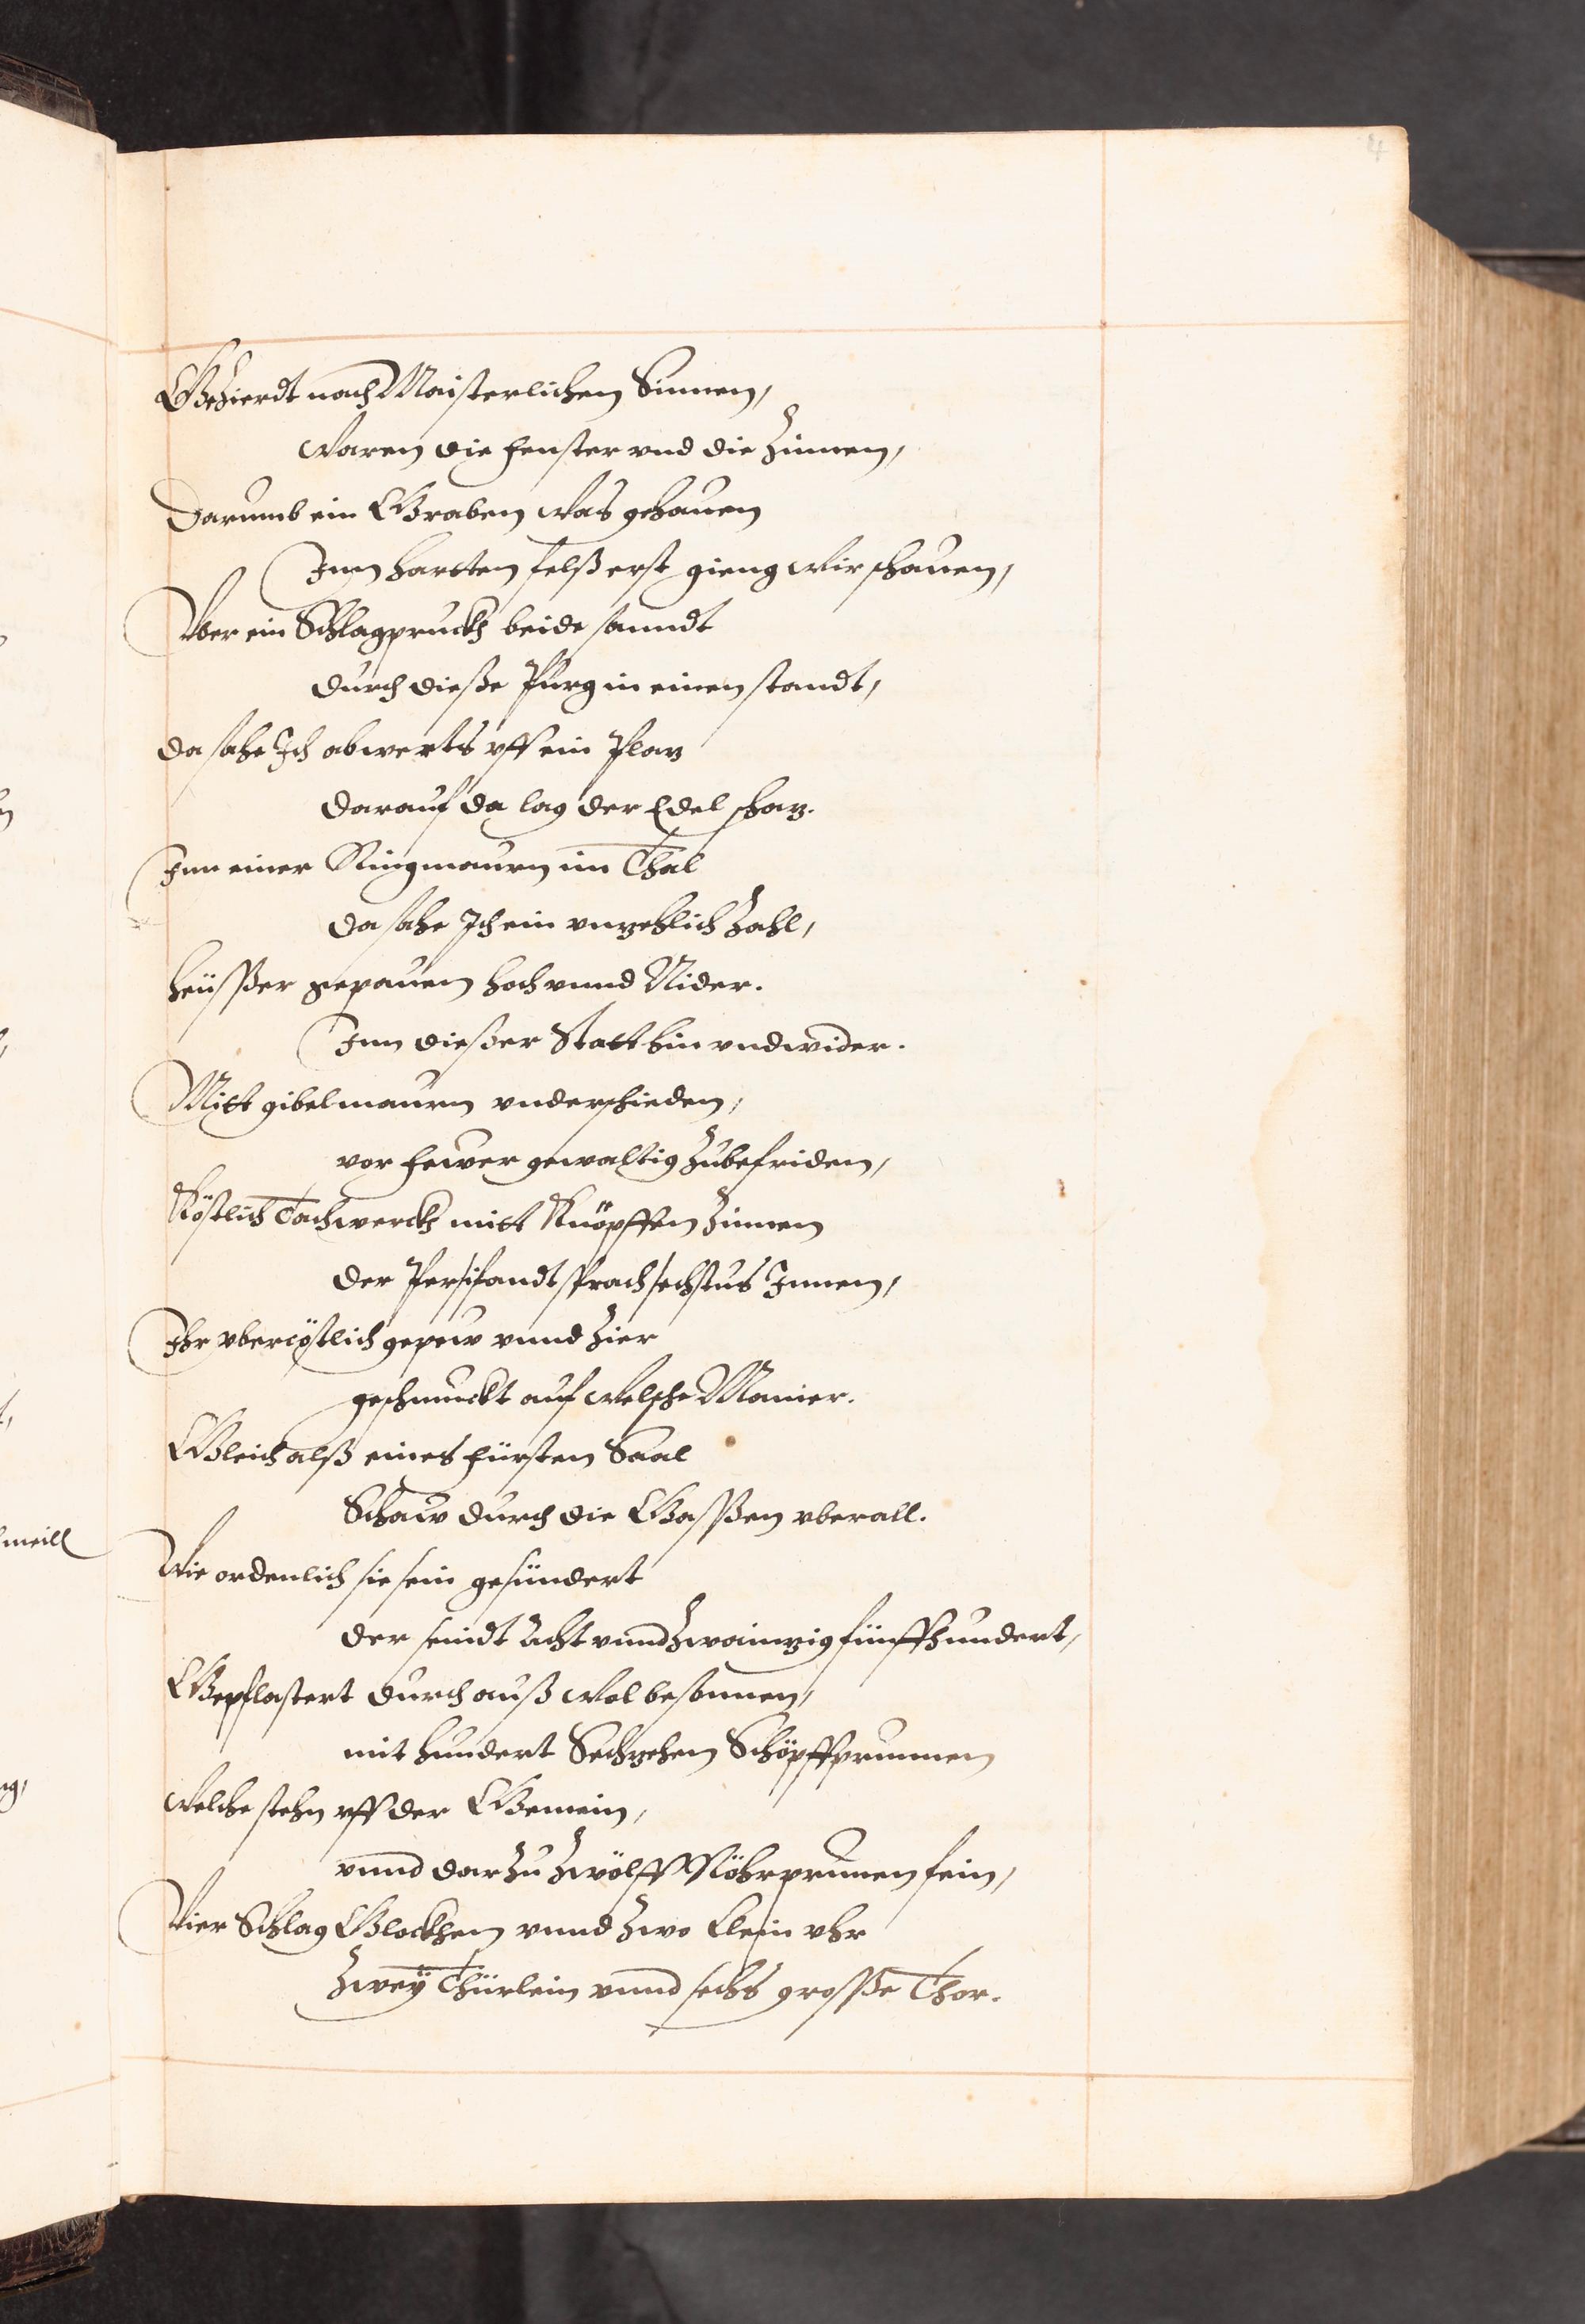 4
Gezierdt nach Maisterlichen Sinnen,
Waren die fenster vnd die Zinnen,
Darumb ein Graben was gehauen
Inn hartten felß erst gieng wir schauen,
Vber ein Schlagpruckh beide sanndt
durch dieße Purg in einen standt,
da sahe Ich abwerts vff ein Plaz
darauf da lag der Edel schaz.
Inn einer Ringmaurn im Thal
da sahe Ich ein vnzehlich Zahl,
heüsßer gepauen hoch vnnd Nider.
Inn dießer Statt hin vnd wider.
Mitt gibelmauren vnderschieden,
vor fewer gewaltig zubefriden,
Köstlich Tachwerckh mitt Knöpffen Zinnen
der Persifandt sprach sechstus Innen,
Ihr vbercöstlich gepew vnnd Zier
geschmuckt auf Welsche Manier.
Gleich alß eines fürsten Saal
Schaw durch die Gasßen vberall.
Wie ordenlich sie sein gesündert
der seindt Acht vnnd Zwainzig fünffhundert,
Gepflastert durch auß Wol besonnen,
mit hundert Sechzehen Schöpffprunnen
Welche stehn vff der Gemein,
vnnd dar Zu Zwölff Röhrprunen fein,
Vier Schlag Glockhen vnnd Zwo klein vhr
Zweÿ Thürlein vnnd sechs grosße Thor.
meill